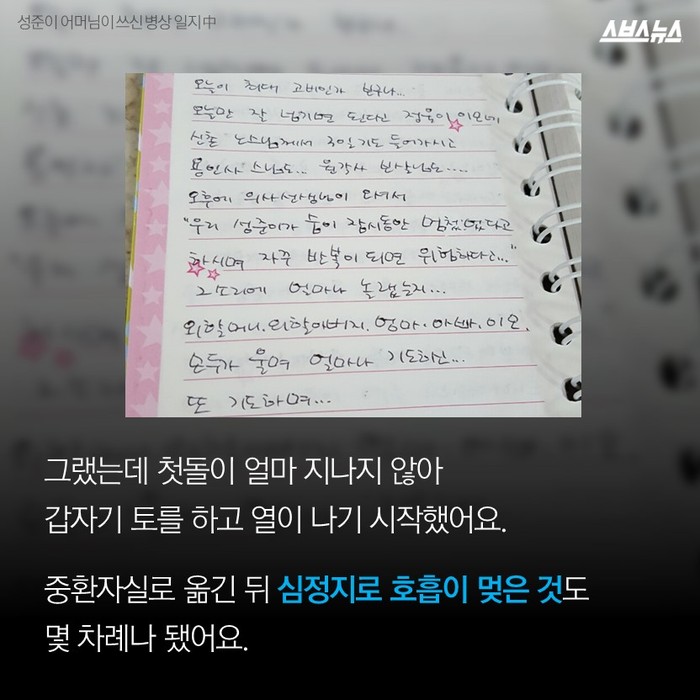 성준이 어머님이 쓰신 병상 일지 中
스브스뉴스
오늘이 최대 고비인가 보구나...
오늘만 잘 넘기면 된다고 정욱이 이모네
신촌 노스님께서 3일기도 들어가시고
용인사 스님도.. 원각사 보살님도....
오후에 의사선생님이 오셔서
"우리 성준이가 숨이 잠시동안 멈췄었다고
하시며 자꾸 반복이 되면 위험하다고..."
그소리에 얼마나 놀랬는지...
외할머니. 외할아버지. 엄마. 아빠. 이모.
모두가 울며 얼마나 기도하신...
또 기도하며...
그랬는데 첫돌이 얼마 지나지 않아
갑자기 토를 하고 열이 나기 시작했어요.
중환자실로 옮긴 뒤 심정지로 호흡이 멎은 것도
몇 차례나 됐어요.